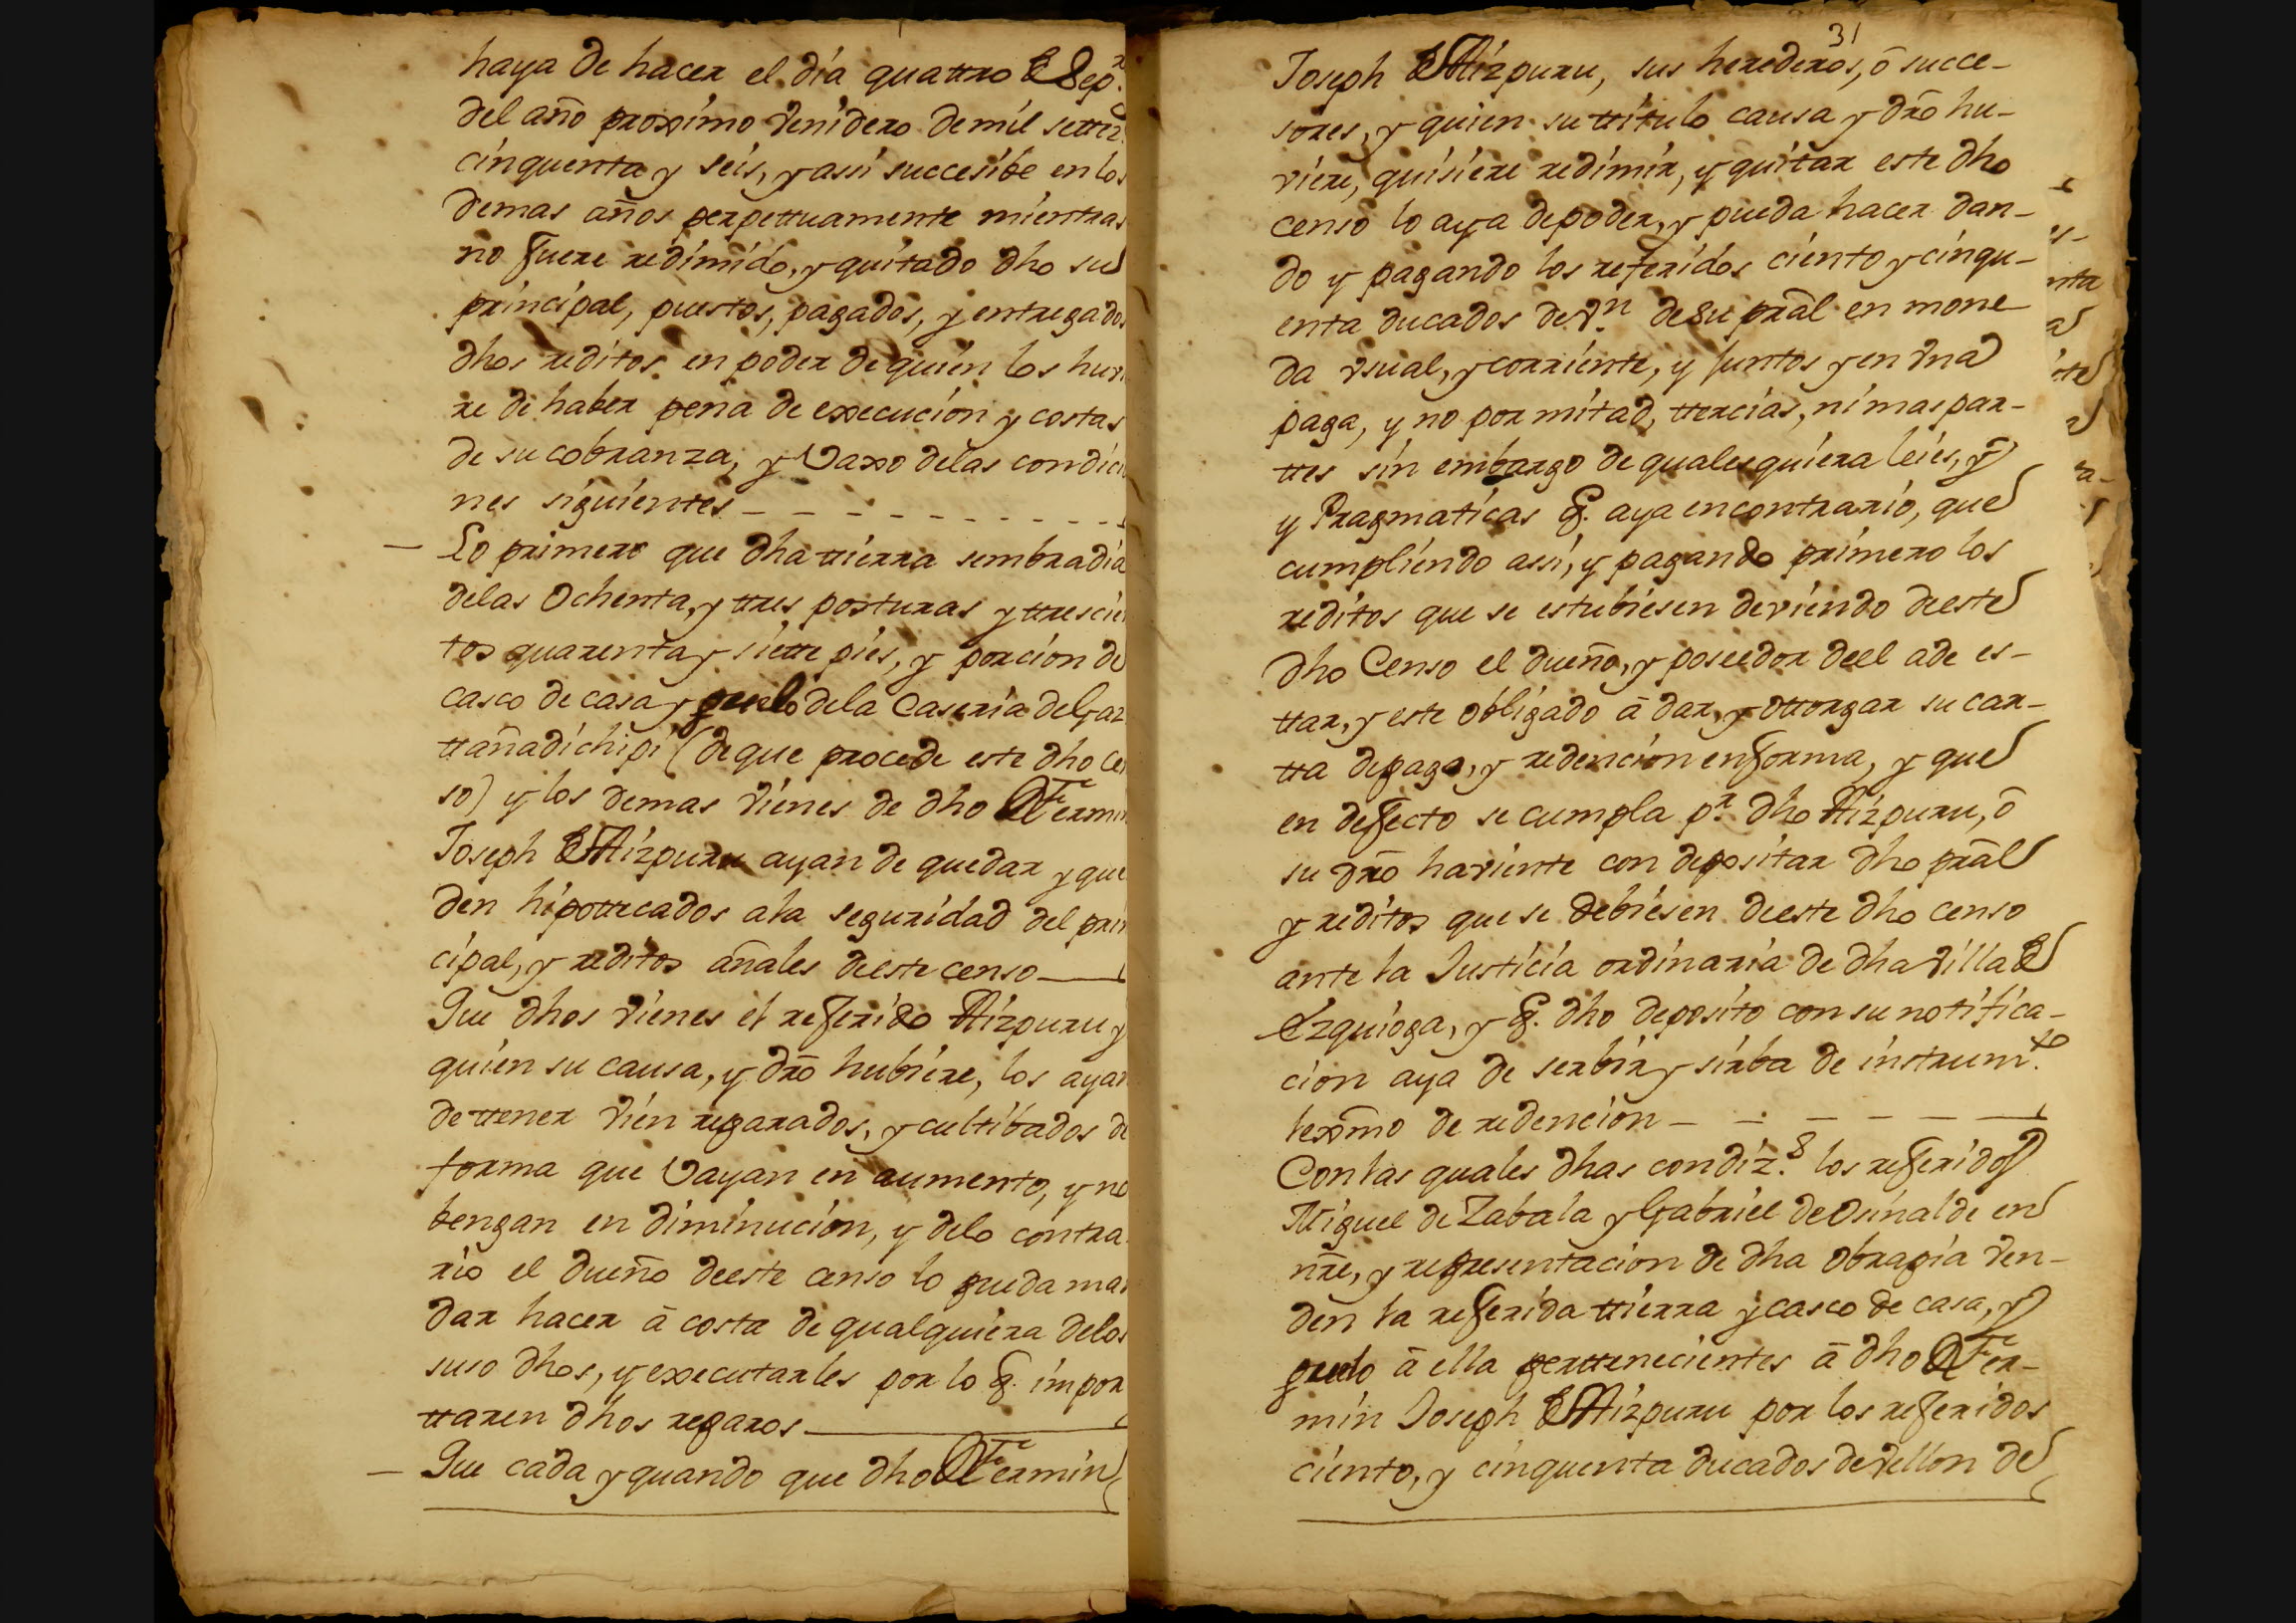 haya de hacer el dia quattro de Sepᵉ.
del año proximo venidero de mil settez.
cinquenta y seis, y assi succesibe en los
demas años perpettuamente mientras
no fuere redimido, y quitado dho su
principal, puestos, pagados, y entregados
dhos reditos en poder de quien los huvi
re de haber pena de execucion y costas
de su cobranza, y vaxo de las condici
nes siguientes
Lo primero que dha ttierra sembradia
de las Ochenta, y ttres posturas y ttrescien
tos quarenta y siette pies, y porcion de
casco de casa y de la Caseria de Gaz
ttañadichipi (de que procede este dho cen
so) y los demas vienes de dho Dⁿ Fermin
Joseph de Aizpuru ayan de quedar y que
den hipottecados a la seguridad del prin
cipal, y reditos añales de este censo
Que dhos vienes el referido Aizpuru y
quien su causa, y dro hubiere, los ayan
de ttener vien reparados, y cultibados de
forma que vayan en aumento, y no
bengan en diminucion, y de lo contra
rio el dueño de este censo lo pueda man
dar hacer à costa de qualquiera de los
suso dhos, y executarles por lo q. impor
ttaren dhos reparos
Que cada y quando que dho Dⁿ Fermin
31
Joseph de Aizpuru, sus herederos, ò succe-
sores, y quien su ttitulo causa y dro hu-
viere, quisiere redimir, y quitar este dho
censo lo aya de poder, y pueda hacer dan-
do y pagando los referidos ciento y cinqu-
enta ducados de vⁿ. de su pral en mone
da vsual, y corriente, y juntos y en vna
paga, y no por mitad, ttercias, ni mas par-
ttes sin embargo de qualesquiera leies, y
y Pragmaticas q. aya en contrario, que
cumpliendo assi, y pagando primero los
reditos que se estubiesen deviendo de este
dho Censo el dueño, y poseedor de el a de es-
ttar, y este obligado à dar, y ottorgar su car-
tta de paga, y redencion en forma, y que
en defecto se cumpla pʳ. dho Aizpuru, ò
su dro haviente con depositar dho pral
y reditos que se debiesen de este dho censo
ante la Justicia ordinaria de dha villa de
Ezquioga, y q. dho deposito con su notifica-
cion aya de serbir y sirba de instrumᵗᵒ.
lexmo de redencion
Con las quales dhas condiz.ˢ los referidos
Miguel de Zabala y Gabriel de Osinalde en
nre, y representacion de dha obrapia ven-
den la referida ttierra y casco de casa, y
à ella perttenecientes à dho Dⁿ Fer-
min Joseph de Aizpuru por los referidos
ciento, y cinquenta ducados de vellon de